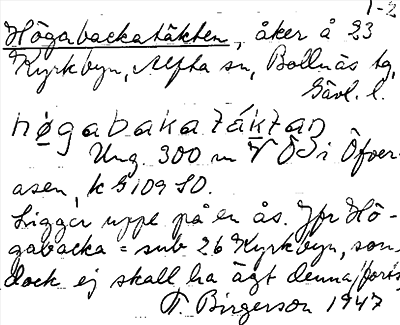 1-2
Högabackatäkten, åker å 23
Kyrkbyn, Alfta sn, Bollnäs tg,
Gävl. l.
høgabakatáktan
Ung. 300 m V Ö i Öfver-
åsen, k G 109 SO.
Ligger uppe på en ås. Jfr Hö-
gabacka = sub 26 Kyrkbyn, som
dock ej skall ha ägt denna /forts.
T. Birgerson 1947